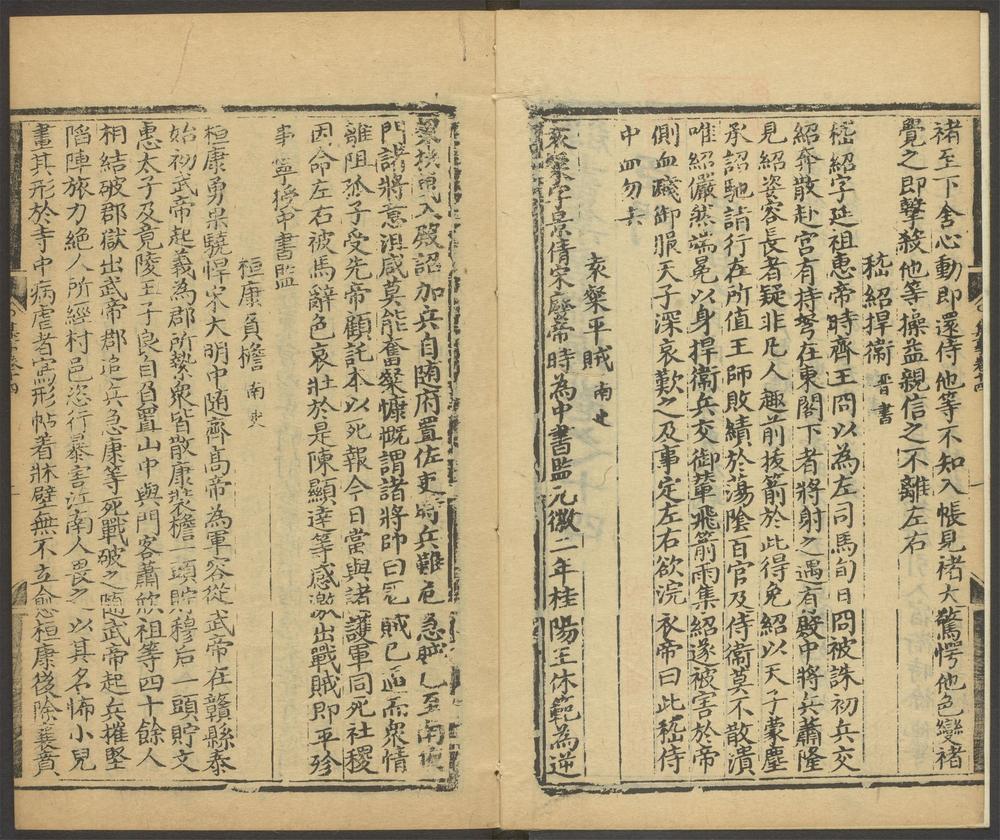 褚至下舍心動即還侍他等不知入帳見褚大驚愕他色變褚
覺之即擊殺他等操益親信之不離左右
嵇紹捍衛 晋書
嵇紹字延祖惠帝時齊王冏以為左司馬旬日冏被誅初兵交
紹奔散赴宮有持弩在東閣下者將射之遇有殿中將兵蕭隆
見紹姿容長者疑非凡人趣前拔箭於此得免紹以天子蒙塵
承詔馳請行在所值王師敗績於蕩陰百官及侍衛莫不散潰
唯紹儼然端冕以身捍衛兵交御輦飛箭雨集紹遂被害於帝
側血濺御服天子深哀歎之及事定左右欲浣衣帝曰此嵇侍
中血勿去
袁粲平賊 南史
袁粲字景倩宋廢帝時為中書監元徽二年桂陽王休範為逆
粲扶曳入殿詔加兵自随府置佐吏時兵難危急賊已至南掖
門諸將意沮咸莫能奮粲慷慨謂諸將帥曰冦賊已逼而衆情
離阻孤子受先帝顧託本以死報今日當與諸護軍同死社稷
因命左右被馬辭色哀壯於是陳顯逹等感激出戰賊即平殄
事寧授中書監
桓康負檐 南史
桓康勇果驍悍宋大明中随齊髙帝為軍容從武帝在贛縣泰
始初武帝起義為郡所縶衆皆散康裝檐一頭貯穆后一頭貯文
惠太子及竟陵王子良自負置山中與門客蕭欣祖等四十餘人
相結破郡獄出武帝郡追兵急康等死戰破之随武帝起兵摧堅
陷陣旅力絶人所經村邑恣行暴害江南人畏之以其名怖小兒
畫其形於寺中病虐者寫形帖着牀壁無不立愈桓康後除襄賁